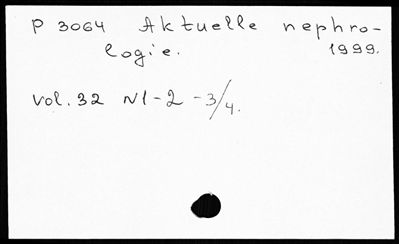 P 3064 Aktuelle nephro-
logie. 1999.
vol. 32 N1-2-3/4.